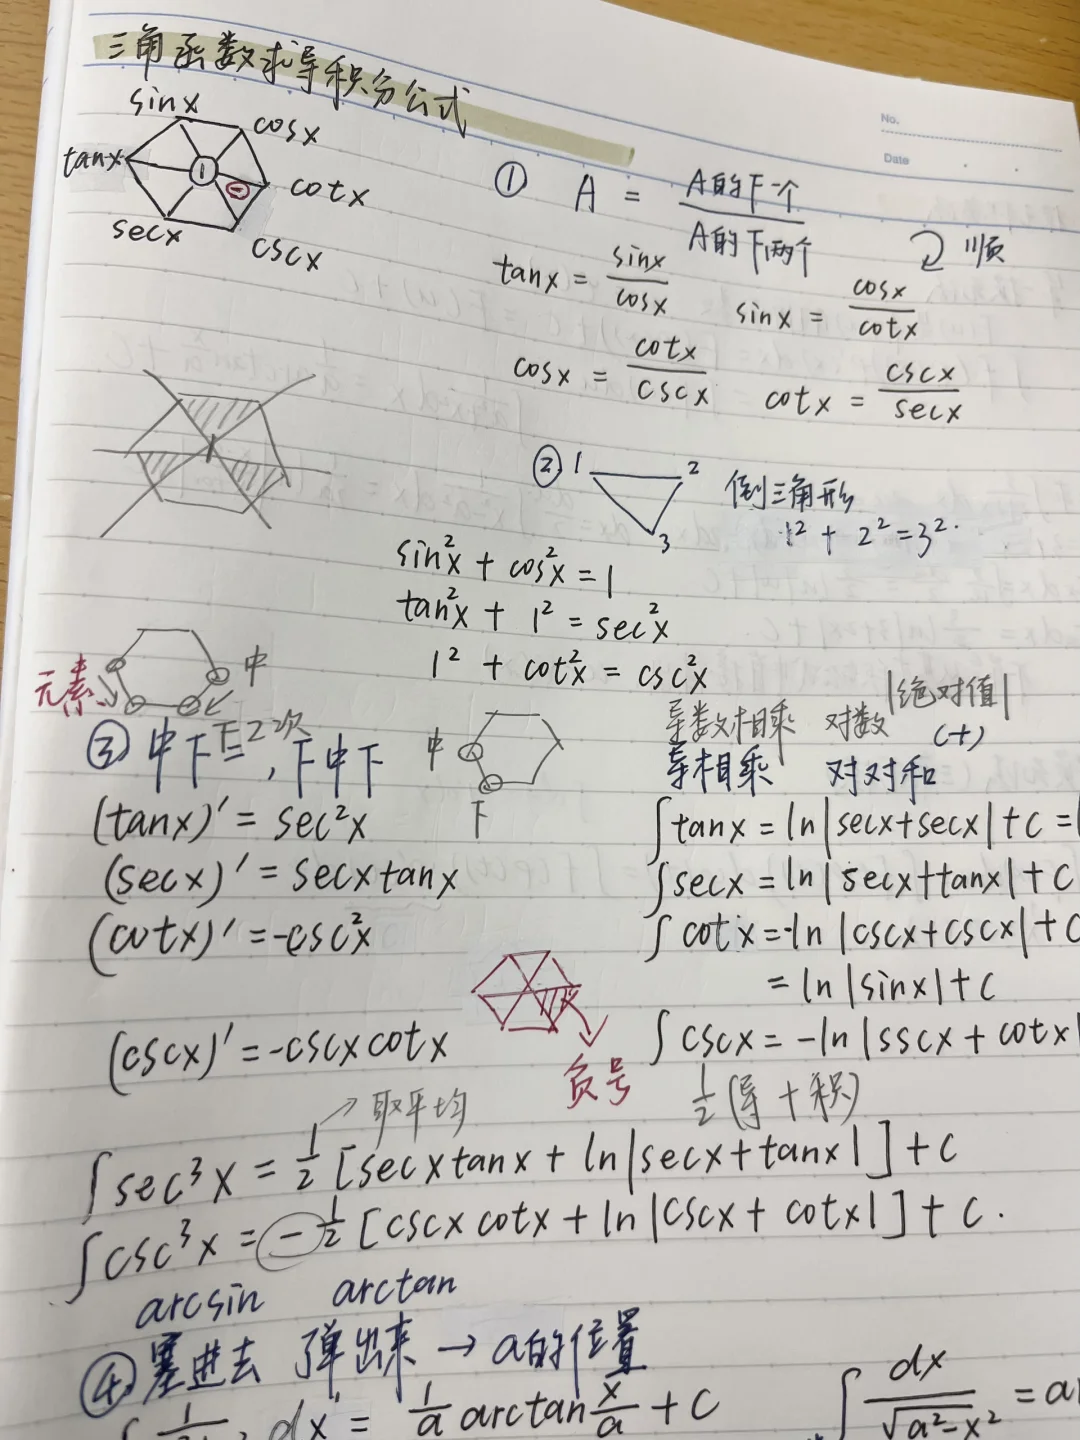 三角函数求导积分公式
No.
Date
sinx
cosx
tanx
1
−
cotx
secx
cscx
① A = A的下一个 / A的下两个
顺
tanx = sinx / cosx
sinx = cosx / cotx
cosx = cotx / cscx
cotx = cscx / secx
② 1 2 3 倒三角形
1² + 2² = 3².
sin²x + cos²x = 1
tan²x + 1² = sec²x
1² + cot²x = csc²x
元素 中
③ 中下下2次, 下中下
中
下
导数相乘 对数 |绝对值|
(+)
导相乘 对对和
(tanx)' = sec²x
(secx)' = secxtanx
(cotx)' = -csc²x
(cscx)' = -cscxcotx
∫tanx = ln|secx+secx|+C =
∫secx = ln|secx+tanx|+C
∫cotx = -ln|cscx+cscx|+C
= ln|sinx|+C
∫cscx = -ln|sscx + cotx|
负号
→取平均
½(导+积)
∫sec³x = ½[secxtanx + ln|secx+tanx|]+C
∫csc³x = -½[cscxcotx + ln|cscx + cotx|]+C.
arcsin arctan
④ 塞进去 弹出来 → a的位置
dx = 1/a arctan x/a + C
∫ dx / √a²-x² = a